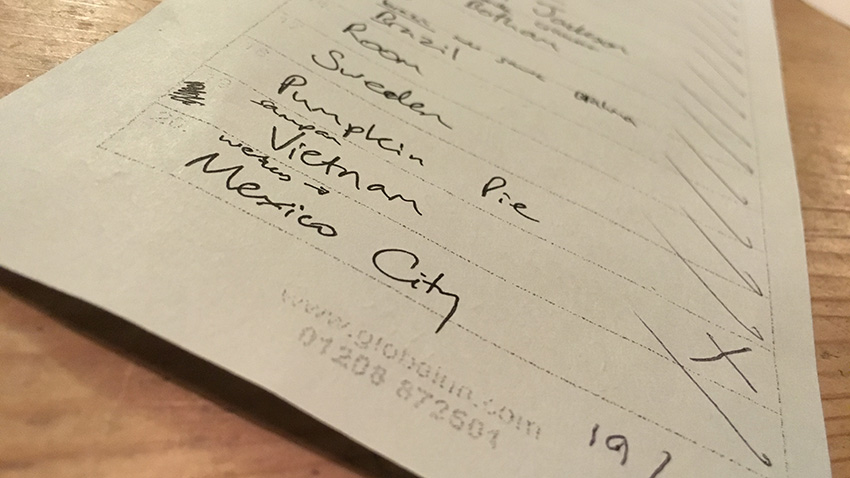 Jackson
Batman
Brazil
Room
Sweden
Pumpkin Pie
Vietnam
20.
Mexico City
www.globeinn.com
01208 872501
19